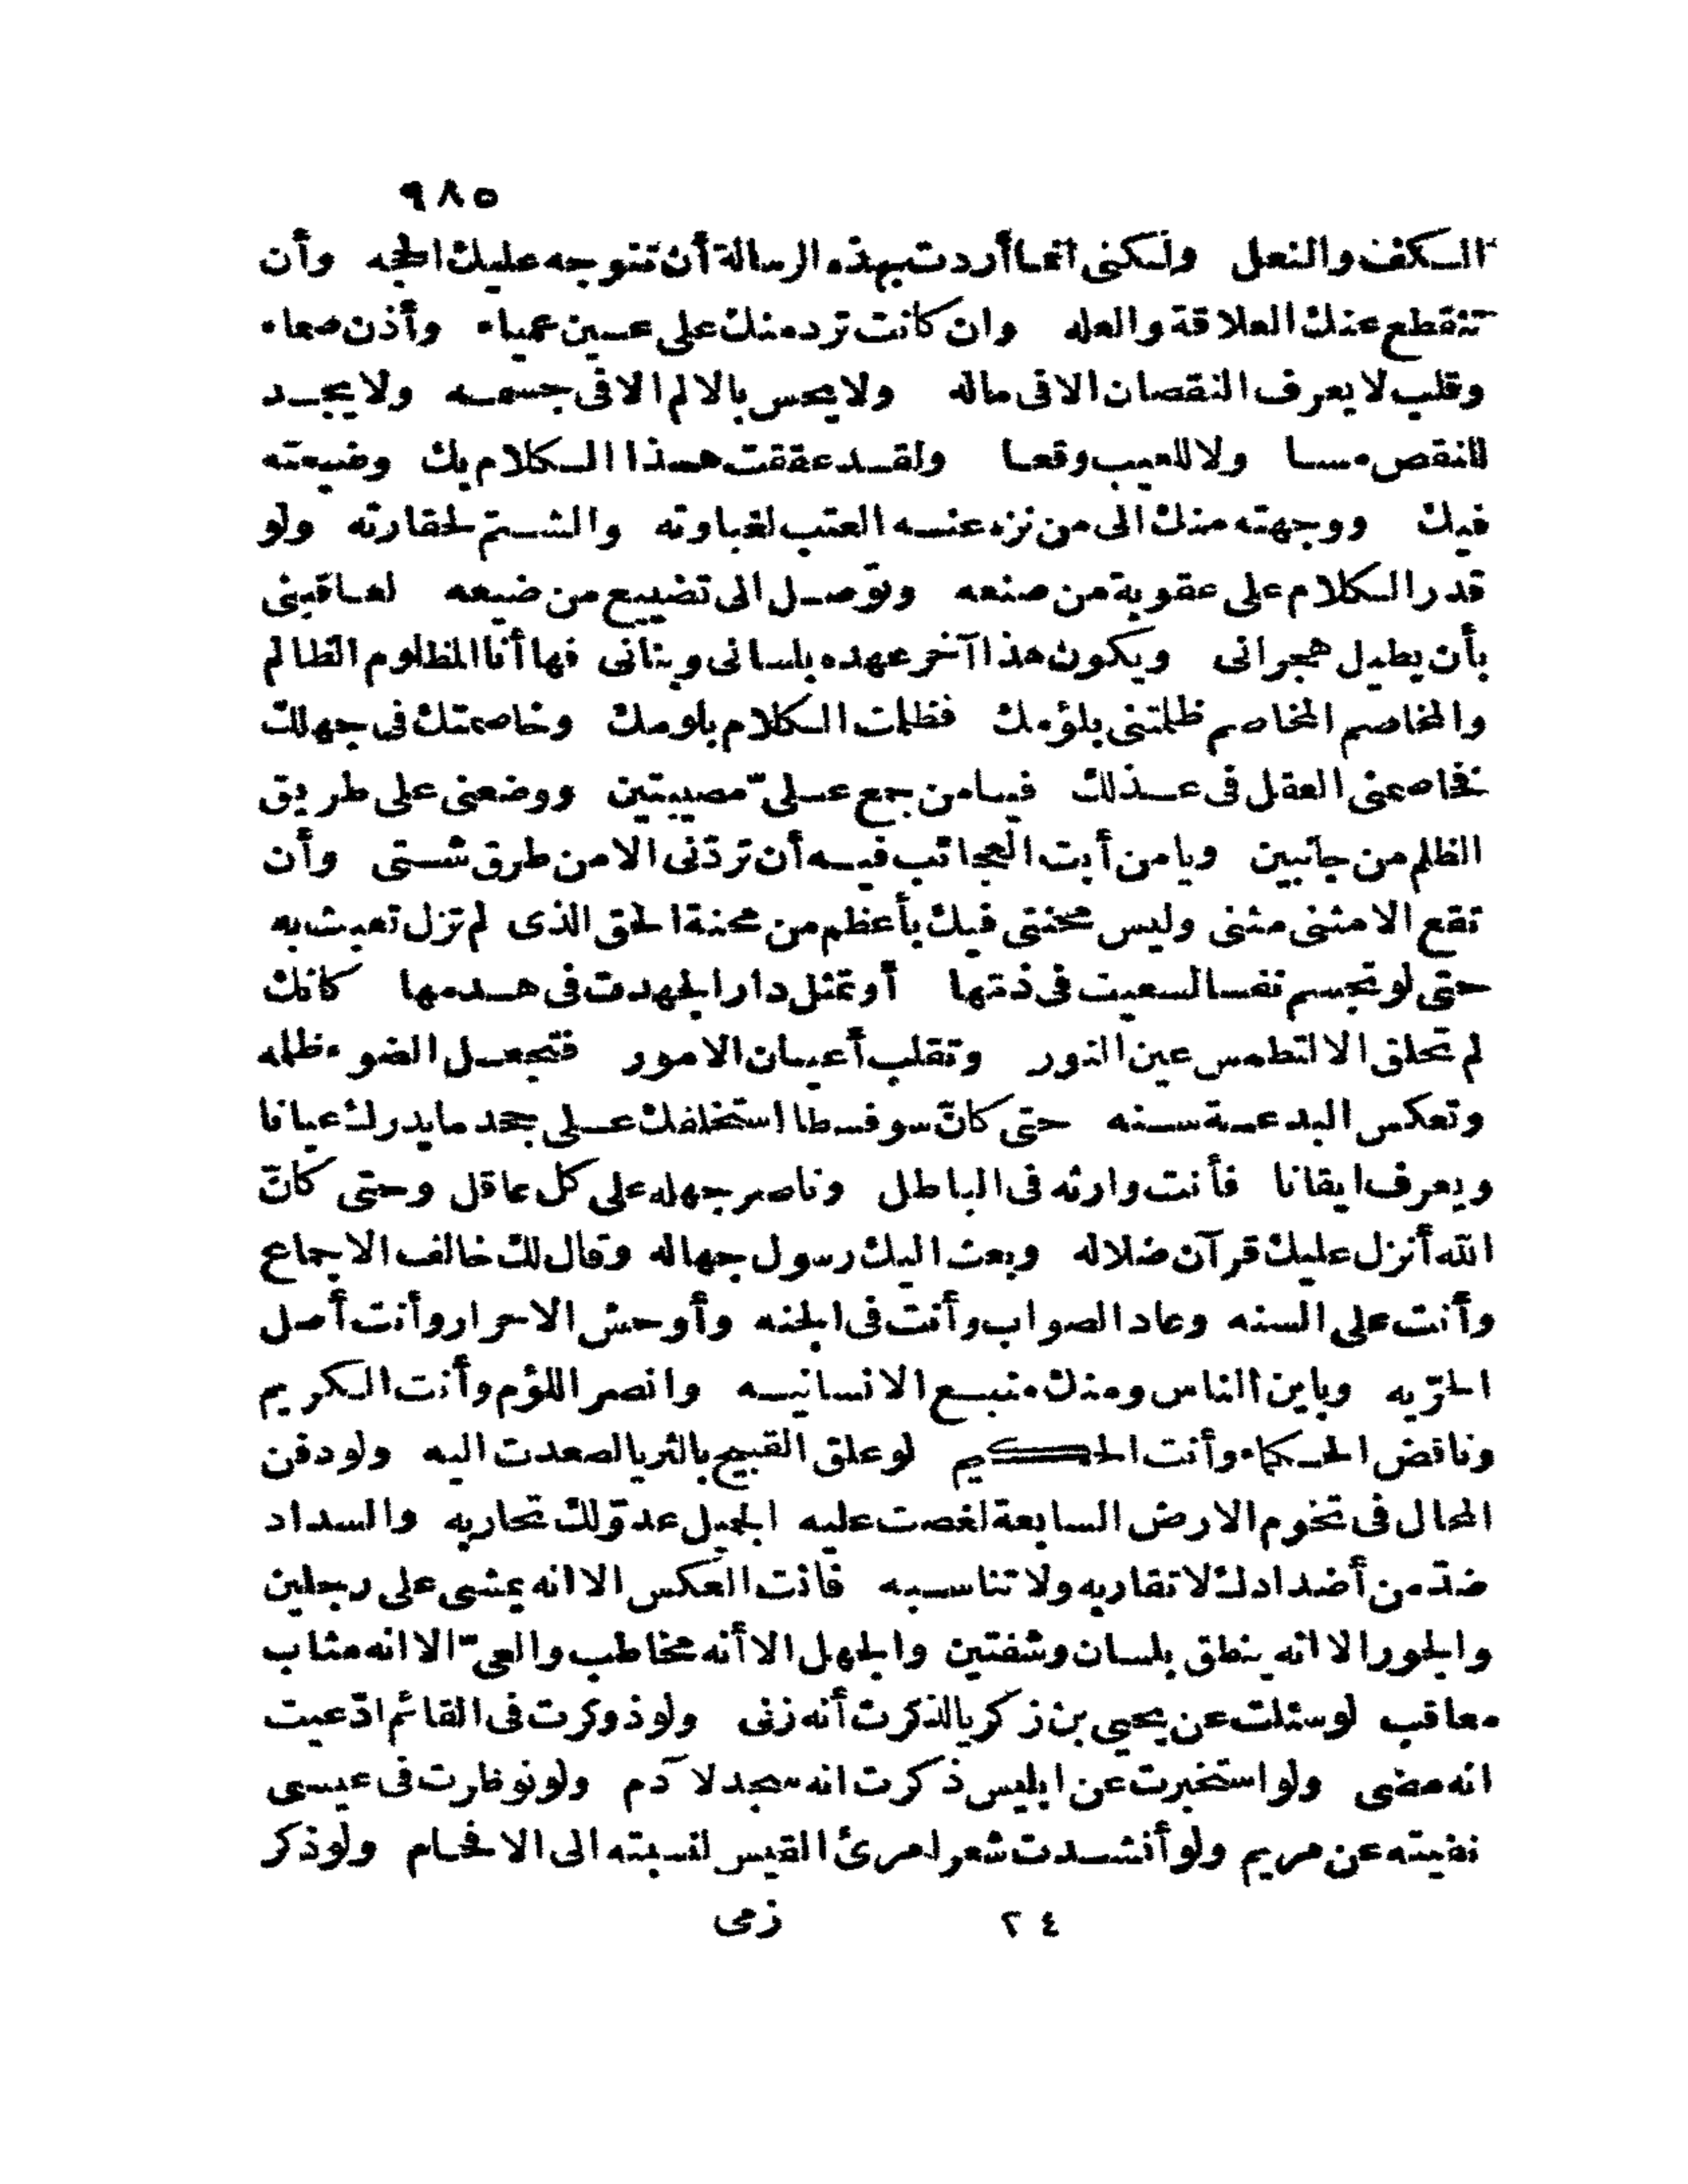 ٩٨٥
الكف والنعل ولكنى انما أردت بهذه الرسالة أن تتوجه عليك الحجه وأن
تنقطع عنك العلاقة والعله وان كانت ترد منك على عين عمياء وأذن صماء
وقلب لا يعرف النقصان الا فى ماله ولا يحس بالالم الا فى جسمه ولا يجد
للنقص مسا ولا للعيب وقعا ولقد عققت هذا الكلام بك وضيعته
فيك ووجهته منك الى من نزه عنه العتب لغباوته والشتم لحقارته ولو
قدر الكلام على عقوبة من صنعه وتوصل الى تضييع من ضيعه لعاقبنى
بأن يطيل هجرانى ويكون هذا آخر عهده بلسانى وبنانى فها أنا المظلوم الظالم
والمخاصم المخاصم ظلمتنى بلؤمك فظلمت الكلام بلومك وخاصمتك فى جهلك
فخاصمنى العقل فى عذلك فيا من جمع علىّ مصيبتين ووضعنى على طريق
الظلم من جانبين ويا من أبت العجائب فيه أن تردّنى الا من طرق شتى وأن
تقع الا مثنى مثنى وليس محنتى فيك بأعظم من محنة الحق الذى لم تزل تعبث به
حتى لو تجسم نفسا لسعيت فى ذمّها أو تمثل دارا لجهدت فى هدمها كانك
لم تخلق الا لتطمس عين النور وتقلب أعيان الامور فتجعل الضوء ظلمه
وتعكس البدعة سنه حتى كانّ سوفسطا استخلفك على جحد ما يدرك عيانا
ويعرف ايقانا فأنت وارثه فى الباطل وناصر جهله على كل عاقل وحتى كانّ
الله أنزل عليك قرآن ضلاله وبعث اليك رسول جهاله وقال لك خالف الاجماع
وأنت على السنه وعاد الصواب وأنت فى الجنه وأوحش الاحرار وأنت أصل
الحرّيه وباين الناس ومنك منبع الانسانيه وانصر اللؤم وأنت الكريم
وناقض الحكماء وأنت الحكيم لو علق القبيح بالثريا لصعدت اليه ولو دفن
المحال فى تخوم الارض السابعة لغصت عليه الجميل عدوّ لك تحاربه والسداد
ضدّ من أضدادك لا تقاربه ولا تناسبه فانت العكس الا انه يمشى على رجلين
والجور الا انه ينطق بلسان وشفتين والجهل الا أنه مخاطب والعىّ الا انه مثاب
معاقب لو سئلت عن يحيى بن زكريا لذكرت أنه زنى ولو ذوكرت فى القائم ادّعيت
انه مضى ولو استخبرت عن ابليس ذكرت انه سجد لآدم ولو نوظرت فى عيسى
نفيته عن مريم ولو أنشدت شعر امرئ القيس لنسبته الى الافحام ولو ذكر
٢٤ زمى